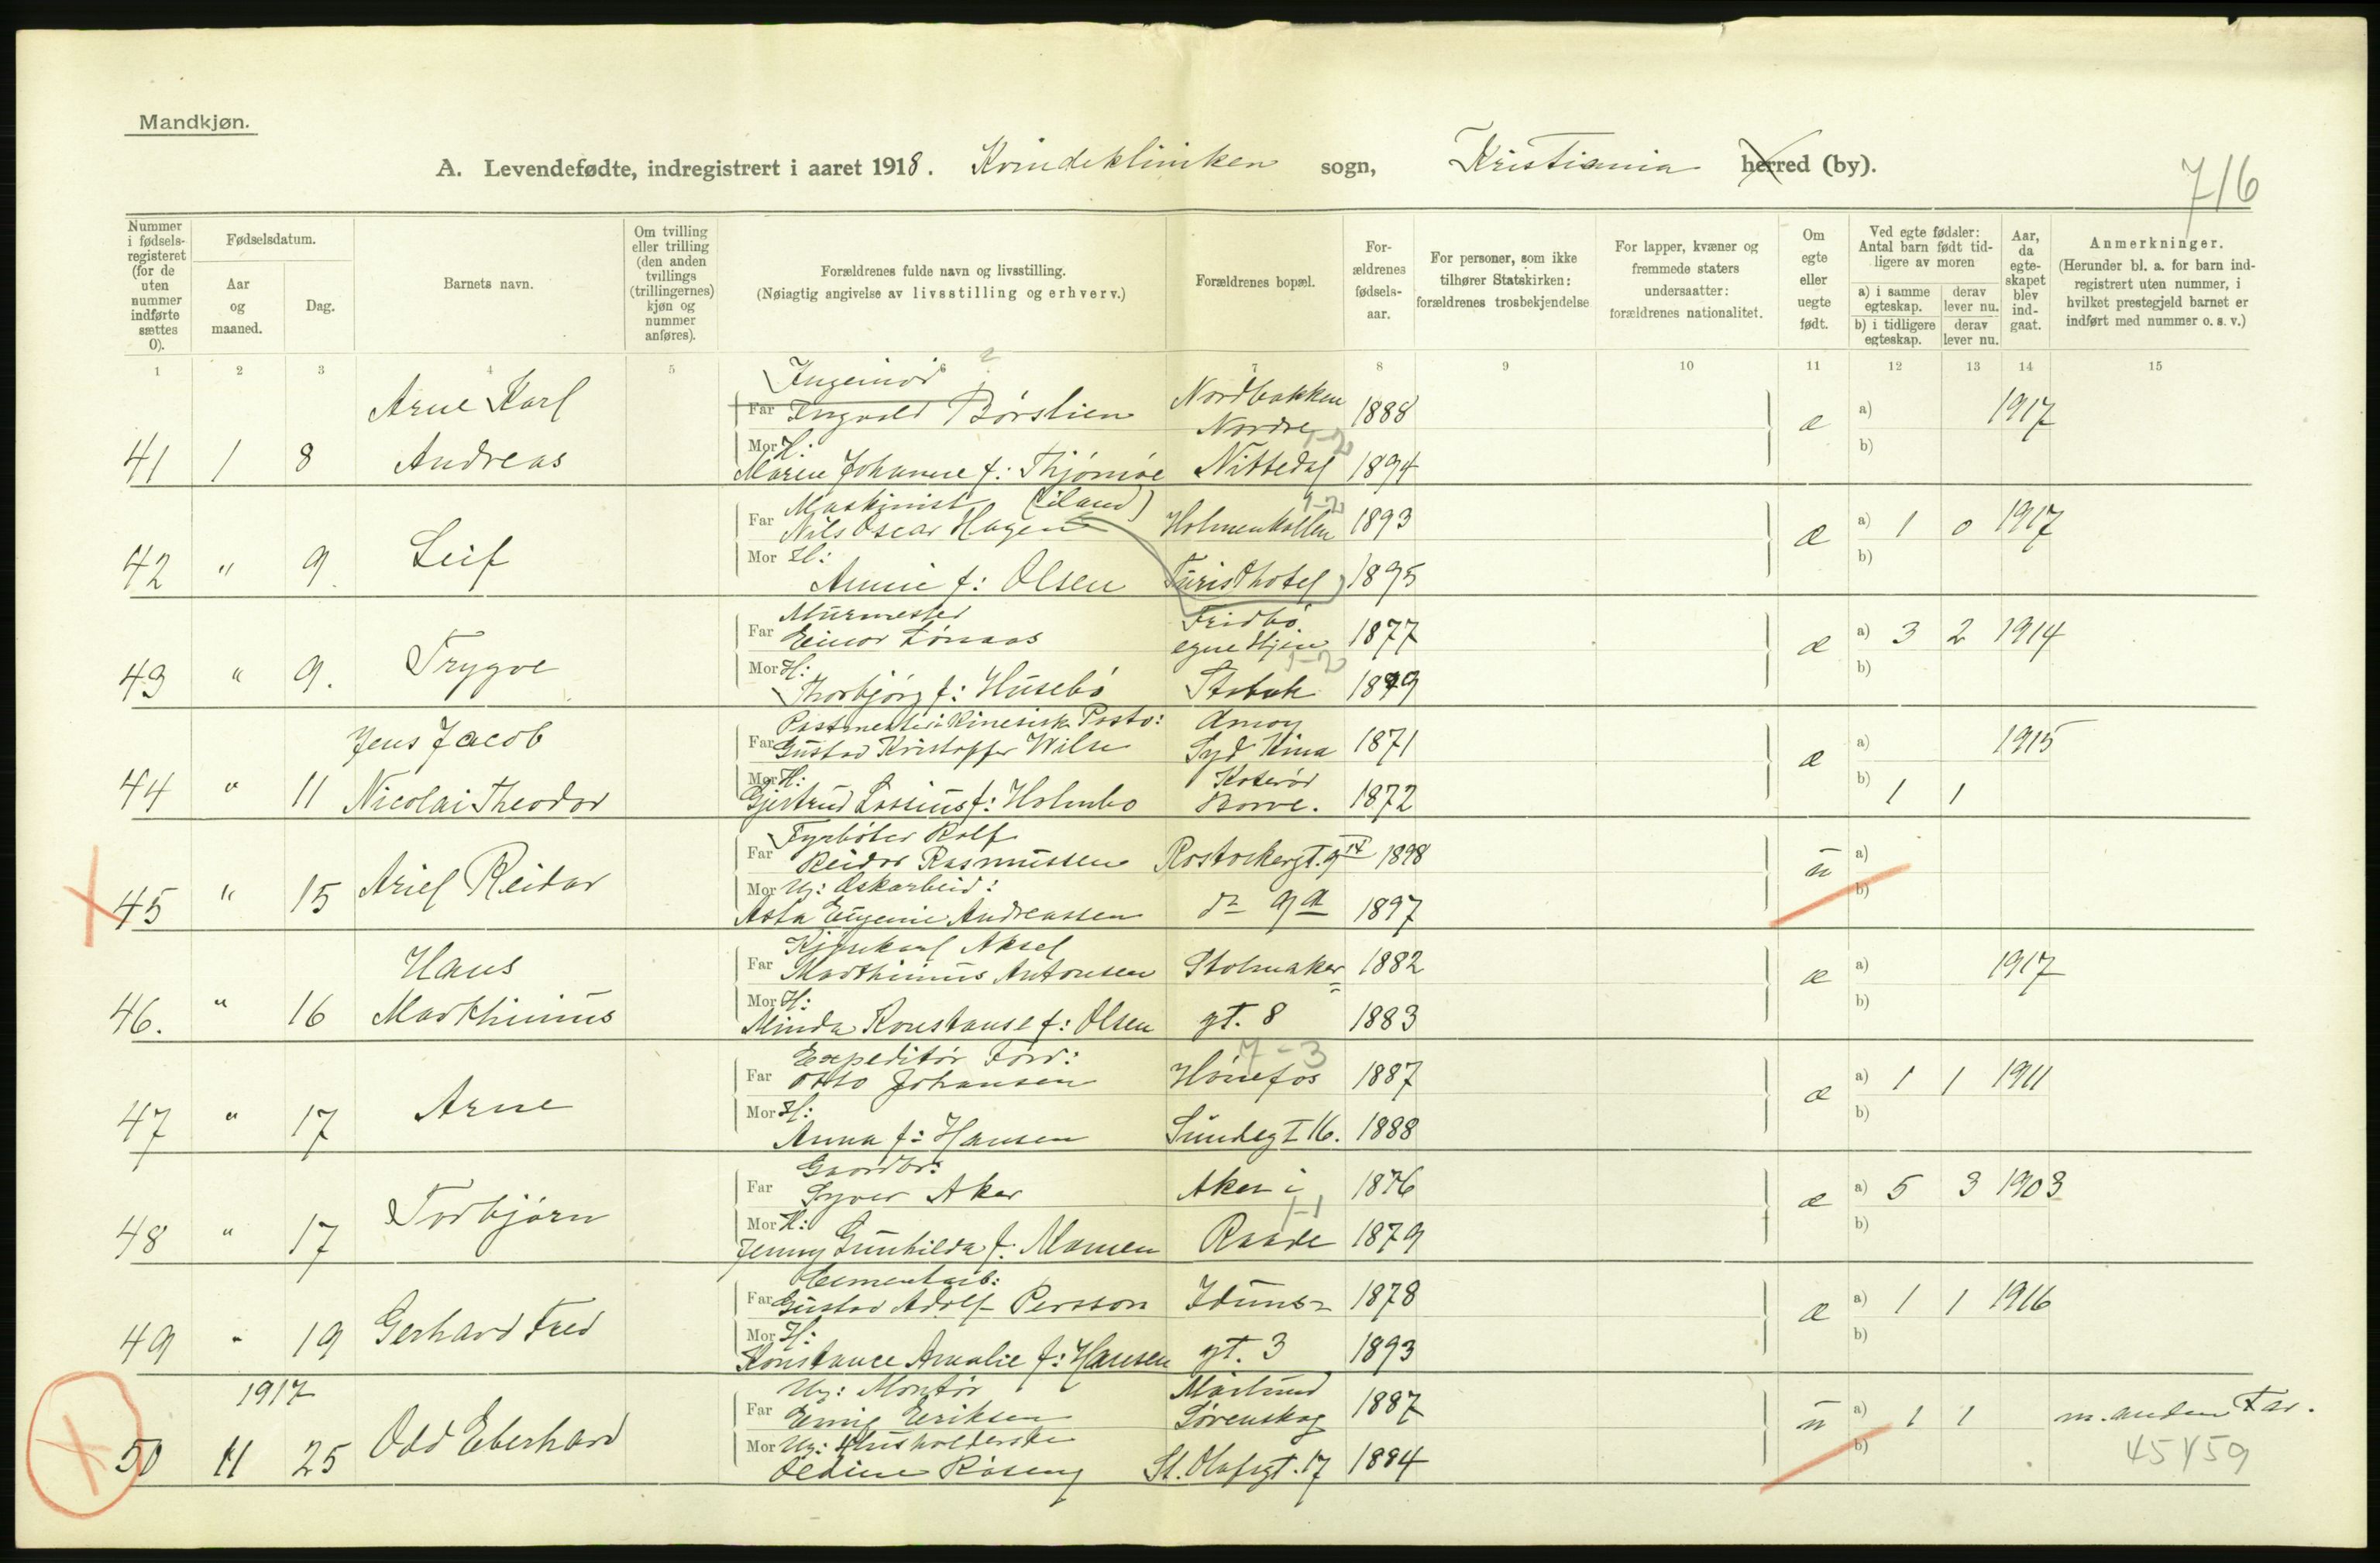 Mandkjøn.
A. Levendefødte, indregistrert i aaret 1918. Kvindekliniken sogn, Kristiania herred (by).
716
Nummer i fødselsregisteret (for de uten nummer indførte sættes 0).
Fødselsdatum.
Aar og maaned.
Dag.
Barnets navn.
Om tvilling eller trilling (den anden tvillings (trillingernes) kjøn og nummer anføres).
Forældrenes fulde navn og livsstilling.
(Nøiagtig angivelse av livsstilling og erhverv.)
Forældrenes bopæl.
Forældrenes fødselsaar.
For personer, som ikke tilhører Statskirken: forældrenes trosbekjendelse
For lapper, kvæner og fremmede staters undersaatter: forældrenes nationalitet.
Om egte eller uegte født.
Ved egte fødsler: Antal barn født tidligere av moren
a) i samme egteskap. derav lever nu.
b) i tidligere egteskap. derav lever nu.
Aar, da egteskapet blev indgaat.
Anmerkninger.
(Herunder bl. a. for barn indregistrert uten nummer, i hvilket prestegjeld barnet er indført med nummer o. s. v.)
1 2 3 4 5 7 8 9 10 11 12 13 14 15
Ingeniør
Arne Karl Far Ingvald Børslien Nordbakken 1888 a) 1917
Nordre
41 1 8 Andreas Mor H: Maren Johanne f: Nittedal 1894 æ b)
Maskinist
Far Nils Oscar Hagen Holmenkollen 1893 a) 1 0 1917
42 " 9. Leif Mor H: Annie f: Olsen Turisthotel 1895 æ b)
Murmester Fridbo
Far Einar Lønaas egne Hjem 1877 a) 3 2 1914
43 " 9. Trygve Mor H: Thorbjørg f: Husebø Stabæk 1889 æ b)
Postmester i Kinesisk Postv: Amoy
Jens Jacob Far Gustav Kristoffer Wilse Syd Kina 1871 a) 1915
44 " 11 Nicolai Theodor Mor H: Gjertrud Lassius f: Holmbo Borre. 1872 æ b) 1 1
Fyrbøter Rolf
Far Reidar Rasmussen Rostockergt. 9 IV 1898 a)
45 " 15 Ariel Reidar Mor Ug: Eskarbeid: Asta Eugenie Andreassen do 9 a 1897 u b)
Kjørekarl Aksel
Hans Far Marthinius Antonsen Stolmaker= 1882 a) 1917
46. " 16 Marthinius Mor H: Minda Konstanse f: Olsen gt. 8 1883 æ b)
Expeditør Ford: 7-3
Far Otto Johansen Hønefos 1887 a) 1 1 1911
47 " 17 Arne Mor H: Anna f: Hansen Sundegt 16. 1888 æ b)
Gaardbr:
Far Syver Aker Aker i 1876 a) 5 3 1903
48 " 17 Torbjørn Mor H: Jenny Gunhilda f: Mamen Raade 1879 æ b)
Cementarb:
Far Gustav Adolf Persson Iduns- 1878 a) 1 1 1916
49 " 19 Gerhard Fred Mor H: Konstance Amalie f: Hansen gt. 3 1893 æ b)
1917 Ug: Montør
Far Eriksen Lørenskog 1887 a) 1 1 m. anden Far.
50 11 25 Odd Eberhard Mor Ug: Husholderske St. Olafsgt. 17 1884 u b)
45/59